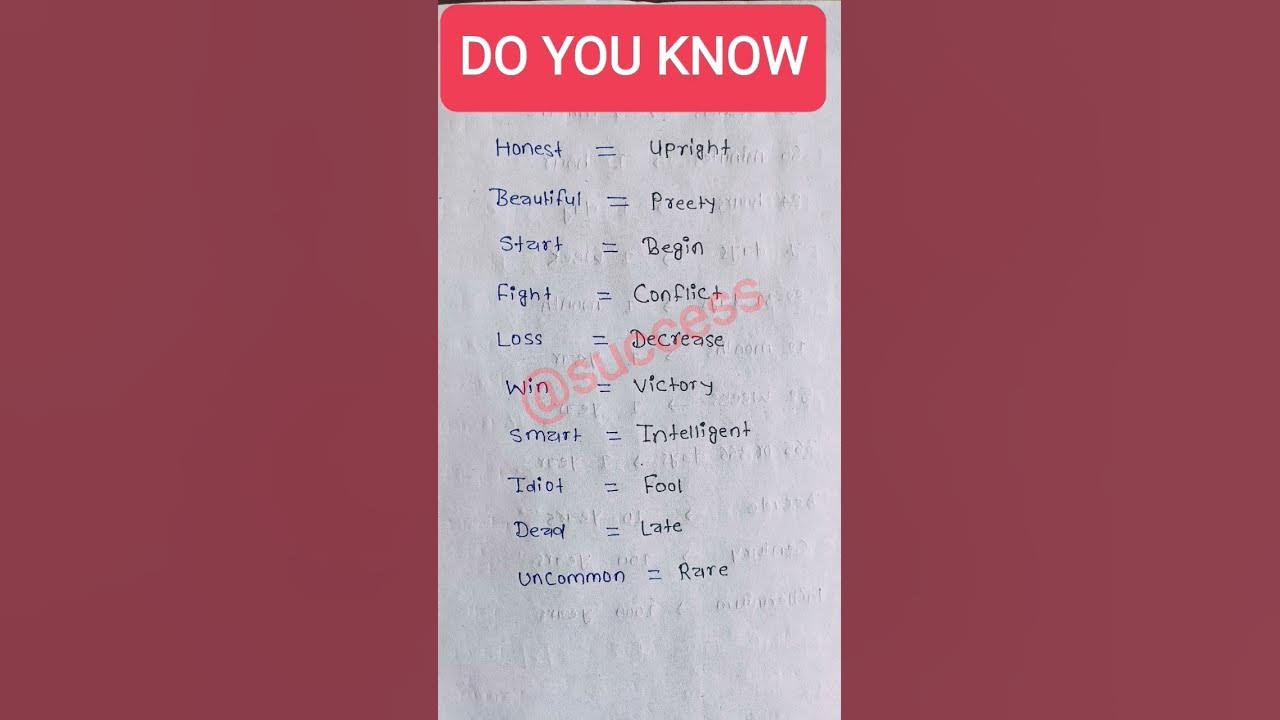 DO YOU KNOW
Honest = Upright
Beautiful = Preety
Start = Begin
Fight = Conflict
Loss = Decrease
@success
Win = Victory
Smart = Intelligent
Idiot = Fool
Dead = Late
Uncommon = Rare